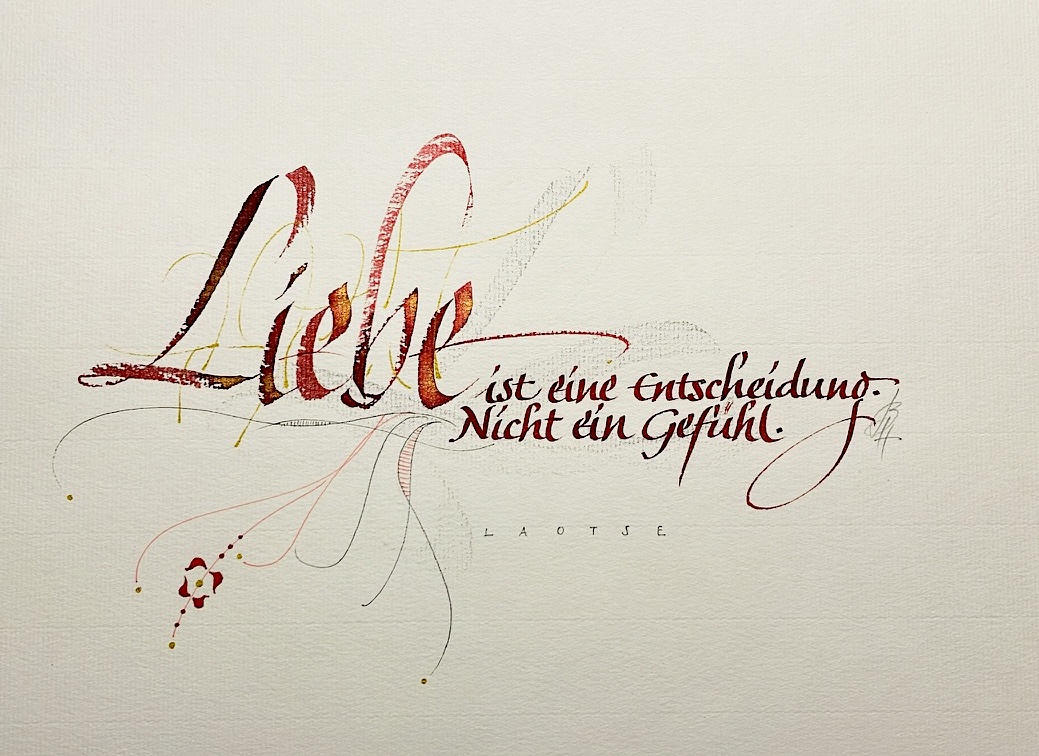 Liebe
ist eine Entscheidung.
Nicht ein Gefühl.
LAOTSE